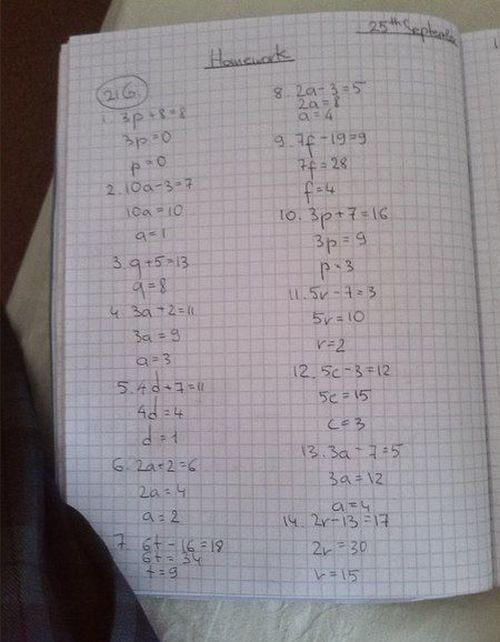 25th September
Homework
2.6
1. 3p + 8 = 8
3p = 0
p = 0
2. 10a - 3 = 7
10a = 10
a = 1
3. q + 5 = 13
q = 8
4. 3a + 2 = 11
3a = 9
a = 3
5. 4d + 7 = 11
4d = 4
d = 1
6. 2a + 2 = 6
2a = 4
a = 2
7. 6t - 16 = 18
6t = 34
t = 9
8. 2a - 3 = 5
2a = 8
a = 4
9. 7f - 19 = 9
7f = 28
f = 4
10. 3p + 7 = 16
3p = 9
p = 3
11. 5r - 7 = 3
5r = 10
r = 2
12. 5c - 3 = 12
5c = 15
c = 3
13. 3a - 7 = 5
3a = 12
a = 4
14. 2r - 13 = 17
2r = 30
r = 15